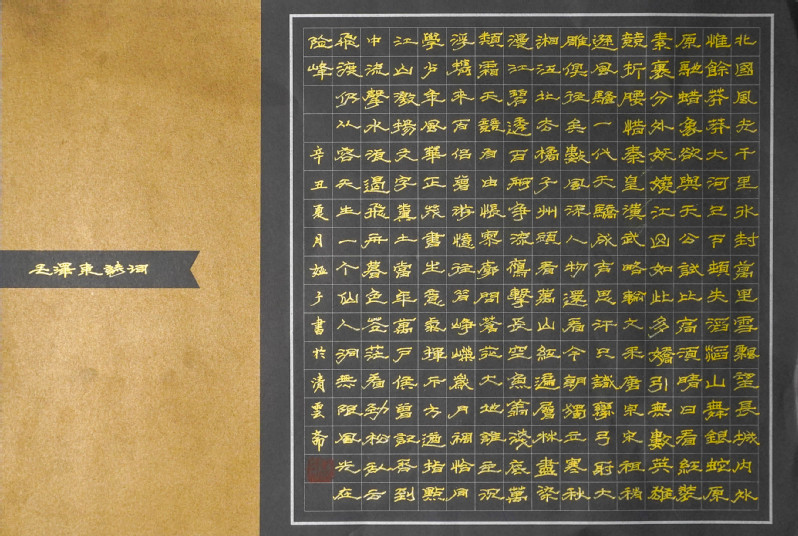 北國風光千里冰封萬里雪飄望長城內外
惟餘莽莽大河上下頓失滔滔山舞銀蛇原
原馳蠟象欲與天公試比高須晴日看紅裝
素裹分外妖嬈江山如此多嬌引無數英雄
競折腰惜秦皇漢武略輸文采唐宗宋祖稍
遜風騷一代天驕成吉思汗只識彎弓射大
雕俱往矣數風流人物還看今朝獨立寒秋
湘江北去橘子州頭看萬山紅遍層林盡染
漫江碧透百舸爭流鷹擊長空魚翔淺底萬
類霜天競自由悵寥廓問蒼茫大地誰主沉
浮攜來百侶曾游憶往昔崢嶸歲月稠恰同
學少年風華正茂書生意氣揮斥方遒指點
江山激揚文字糞土當年萬戶侯曾記否到
中流擊水浪遏飛舟暮色蒼茫看勁松亂云
飛渡仍从容天生一个仙人洞無限風光在
險峰 辛丑夏月子書於清雲齋
毛澤東詩詞